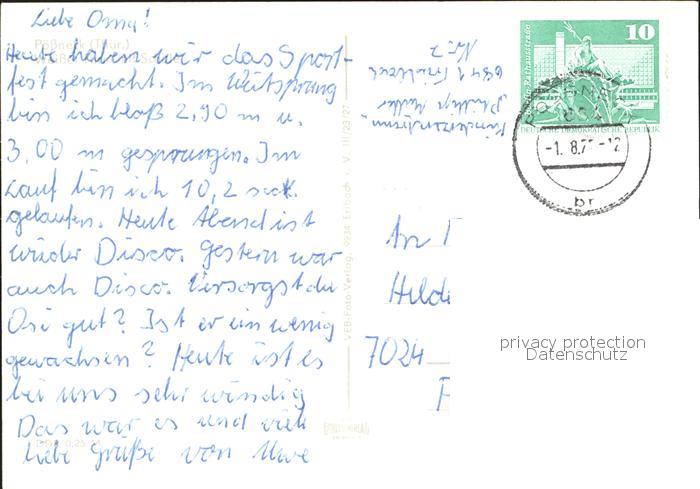 Liebe Oma!
Heute haben wir das Sport-
fest gemacht. Im Weitsprung
bin ich bloß 2,90 m u.
3,00 m gesprungen. Im
Lauf bin ich 10,2 sek.
gelaufen. Heute Abend ist
wieder Disco. Gestern war
auch Disco. Versorgst du
Osi gut? Ist er ein wenig
gewachsen? Heute ist es
bei uns sehr windig
Das war es und viele
liebe Grüße von Uwe
Poßneck (Thür.)
VEB-Foto-Verlag, 9934 Erlbach i. V. III/23/27
Nr. 2
6841
"Phillipp Müller"
10
DEUTSCHE DEMOKRATISCHE REPUBLIK
-1. 8.7 -12
br
An
Hilde
7024
privacy protection
Datenschutz